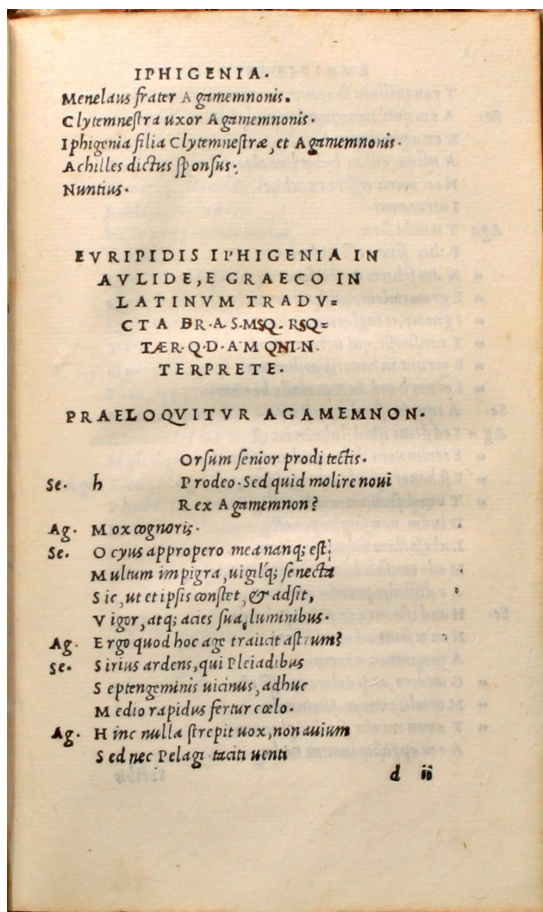 IPHIGENIA.
Menelaus frater Agamemnonis.
Clytemnestra uxor Agamemnonis.
Iphigenia filia Clytemnestræ, et Agamemnonis.
Achilles dictus sponsus.
Nuntius.
EVRIPIDIS IPHIGENIA IN
AVLIDE, E GRAECO IN
LATINVM TRADV=
CTA
TERPRETE.
PRAELOQVITVR AGAMEMNON.
Orsum senior prodi tectis.
Se. h Prodeo. Sed quid molire noui
Rex Agamemnon?
Ag. Mox cognoris.
Se. Ocyus appropero mea nanq; est
Multum impigra, uigilq; senecta
Sic, ut et ipsis constet, & adsit,
Vigor, atq; acies sua luminibus.
Ag. Ergo quod hoc age traiicit astrum?
Se. Sirius ardens, qui Pleiadibus
Septengeminis uicinus, adhuc
Medio rapidus fertur cœlo.
Ag. Hinc nulla strepit uox, non auium
Sed nec Pelagi taciti uenti
d ii